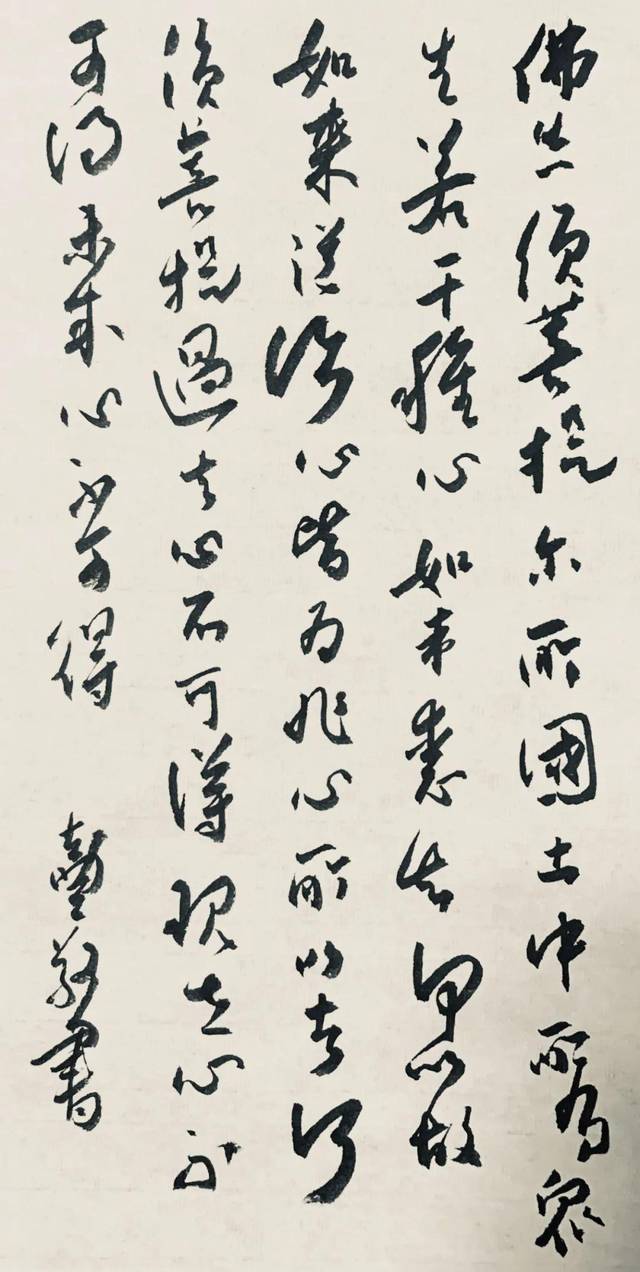 佛告須菩提尔所國土中所有眾
生若干種心如来悉知何以故
如來說諸心皆為非心所以者何
須菩提過去心不可得現在心不
可得未來心不可得 敬書